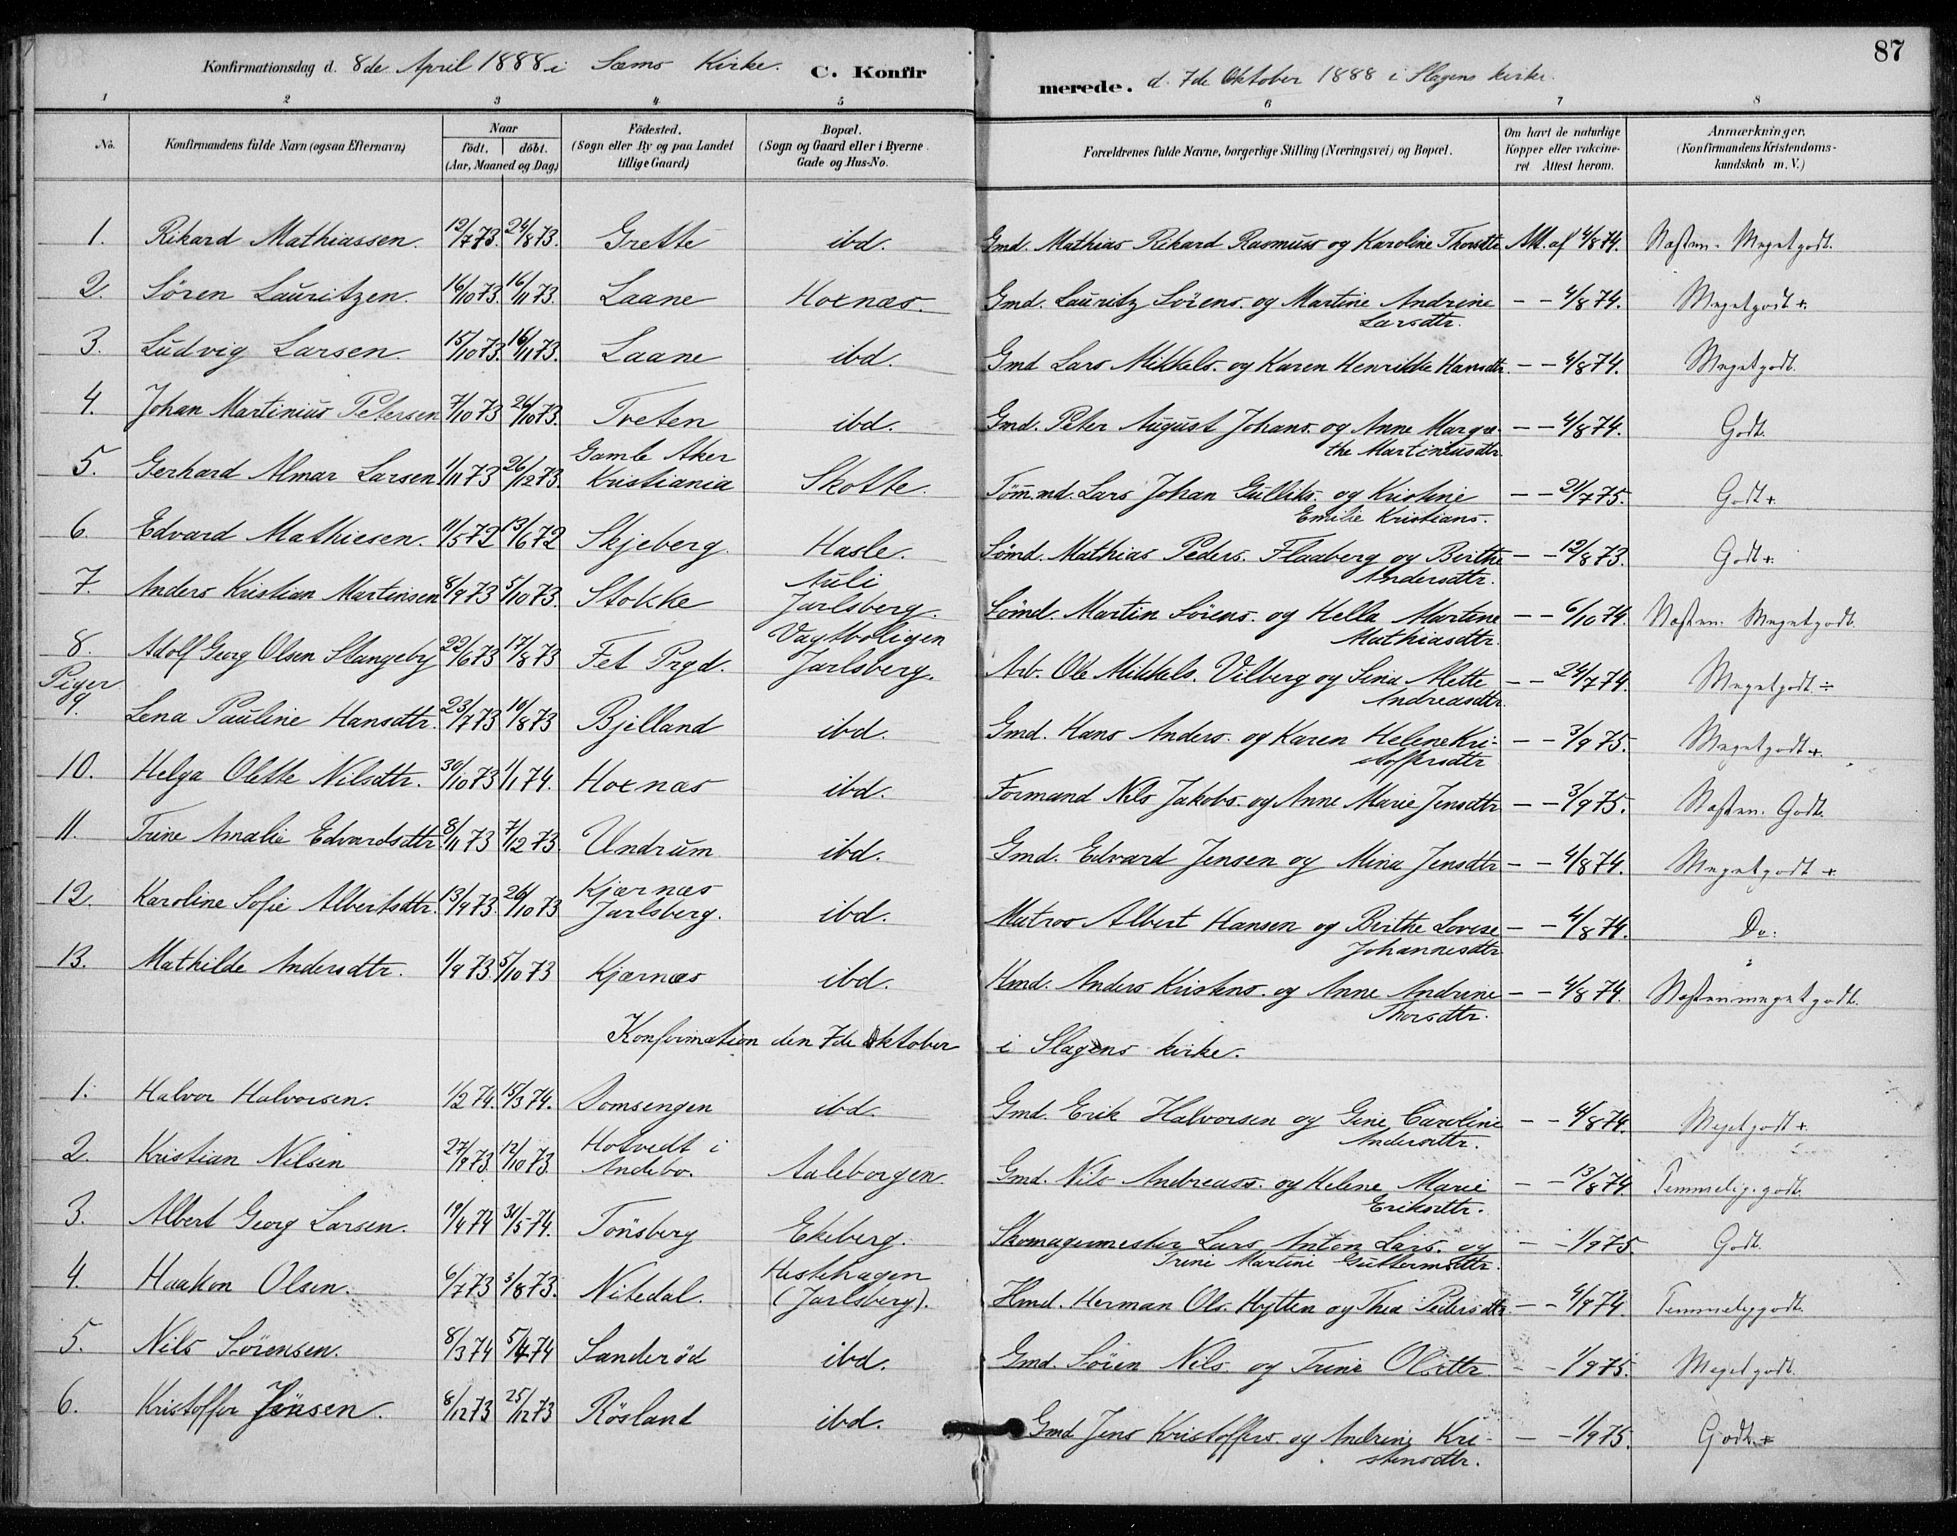 87
Konfirmationsdag d. 8de April 1888 i Sæms Kirke. C. Konfirmerede. d. 7de Oktober 1888 i Slagens kirke.
1 2 3 4 5 6 7 8
No. Konfirmandens fulde Navn (ogsaa Efternavn) Naar født. døbt. (Aar, Maaned og Dag.) Födested. (Sogn eller By og paa Landet tillige Gaard.) Bopæl. (Sogn og Gaard eller i Byerne Gade og Hus-No. Forældrenes fulde Navne, borgerlige Stilling (Næringsvei) og Bopæl. Om havt de naturlige Kopper eller vakcineret Attest herom. Anmærkninger. (Konfirmandens Kristendomskundskab m. V.)
1. Rikard Mathiassen. 12/7 73. 24/8 73. Grette ibd. Gmd. Mathias Rikard Rasmuss og Karoline Thorsdtr. Att. af 4/8 74. Næsten. Megetgodt.
2. Sören Lauritzen. 16/10 73. 16/11 73. Laane Hoenæs. Gmd. Lauritz Sörens. og Martine Andrine Larsdtr. – – 4/8 74. Megetgodt +.
3. Ludvig Larsen 15/10 73. 16/11 73. Laane ibd. Gmd Lars Mikkels. og Karen Henrikke Hansdtr. – – 4/8 74. Megetgodt.
4. Johan Martinius Petersen 7/10 73 26/10 73. Treten ibd. Gmd. Peter August Johans. og Anne Margrethe Martiniusdtr – – 4/8 74. Godt.
5. Gerhard Almar Larsen 1/11 73 26/12 73. Gamle Aker Kristiania Skotte. Töm.md. Lars Johan Gulliks. og Kristine Emilie Kristians. – – 21/7 75. Godt +.
6. Edvard Mathiesen. 11/5 72 13/6 72 Skjeberg. Hasle. Sömd. Mathias Peders. Flaaberg og Berthe Andersdtr. – – 12/8 73. Godt +.
7. Anders Kristian Martinsen 8/9 73 5/10 73. Stokke Auli Jarlsberg. Sömd. Martin Sörens. og Hella Martine Mathiasdtr. – – 6/10 74. Næsten. Megetgodt.
8. Adolf Georg Olsen Stangeby 22/6 73 17/8 73 Fet Prgd. Vagtboligen Jarlsberg. Arb. Ole Mikkels. Vilberg og Lina Mette Andreasdtr. – – 24/7 74. Megetgodt ÷
Piger
9. Lena Pauline Hansdtr. 23/7 73 10/8 73 Bjelland ibd. Gmd. Hans Anders. og Karen Helene Kristoffersdtr – – 3/9 75. Megetgodt +.
10. Helga Olette Nilsdtr. 30/10 73 1/1 74. Hoenæs ibd. Formand Nils Jakobs. og Anne Marie Jensdtr – – 3/9 75. Næsten. Godt.
11. Trine Amalie Edvardsdtr 8/11 73 7/12 73. Undrum ibd. Gmd. Edvard Jensen og Mina Jensdtr – – 4/8 74. Megetgodt +
12. Karoline Sofie Albertsdtr. 13/9 73. 26/10 73 Kjærnæs Jarlsberg. ibd. Matros Albert Hansen og Berthe Lovise Johannesdtr – – 4/8 74. Do:
13. Mathilde Andersdtr. 1/9 73. 5/10 73 Kjærnæs ibd. Hmd. Anders Kristens. og Anne Andrine Thorsdtr. – – 4/8 74. Næstenmegetgodt.
Konfirmation den 7de Oktober i Slagens kirke.
1. Halvor Halvorsen. 1/2 74. 15/3 74. Somsengen ibd. Gmd. Erik Halvorsen og Gine Caroline Andersdtr. – – 4/8 74. Megetgodt +.
2. Kristian Nilsen 27/9 73. 12/10 73 Hotvedt i Andebo. Aaleborgen. Gmd. Nils Andreass. og Helene Marie Eriksdtr. – – 13/8 74 Temmelig. godt.
3. Albert Georg Larsen. 19/4 74 31/5 74. Tönsberg Ekeberg. Skomagermester Lars Anton Lars. og Trine Martine Guttormsdtr. – – 1/9 75 Godt.
4. Haakon Olsen. 6/7 73 3/8 73. Nitedal. Hestehagen (Jarlsberg). Hmd. Herman Ols. Hytten og Thea Pedersdtr – – 4/9 74. Temmeliggodt.
5. Nils Sörensen. 8/3 74 5/4 74 Sanderöd ibd. Gmd. Sören Nils. og Trine Olsdtr – – 1/9 75. Megetgodt.
6. Kristoffer Jensen. 8/12 73 25/12 73 Rösland ibd. Gmd Jens Kristoffers. og Andrine Kristensdtr. – – 1/9 75. Godt. +